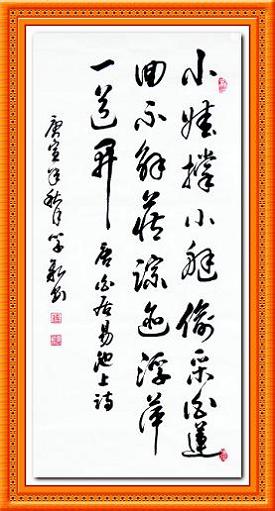 小娃撑小艇偷采白蓮
回不解藏踪迹浮萍
一道开 唐白居易池上诗
庚寅年秋月 书